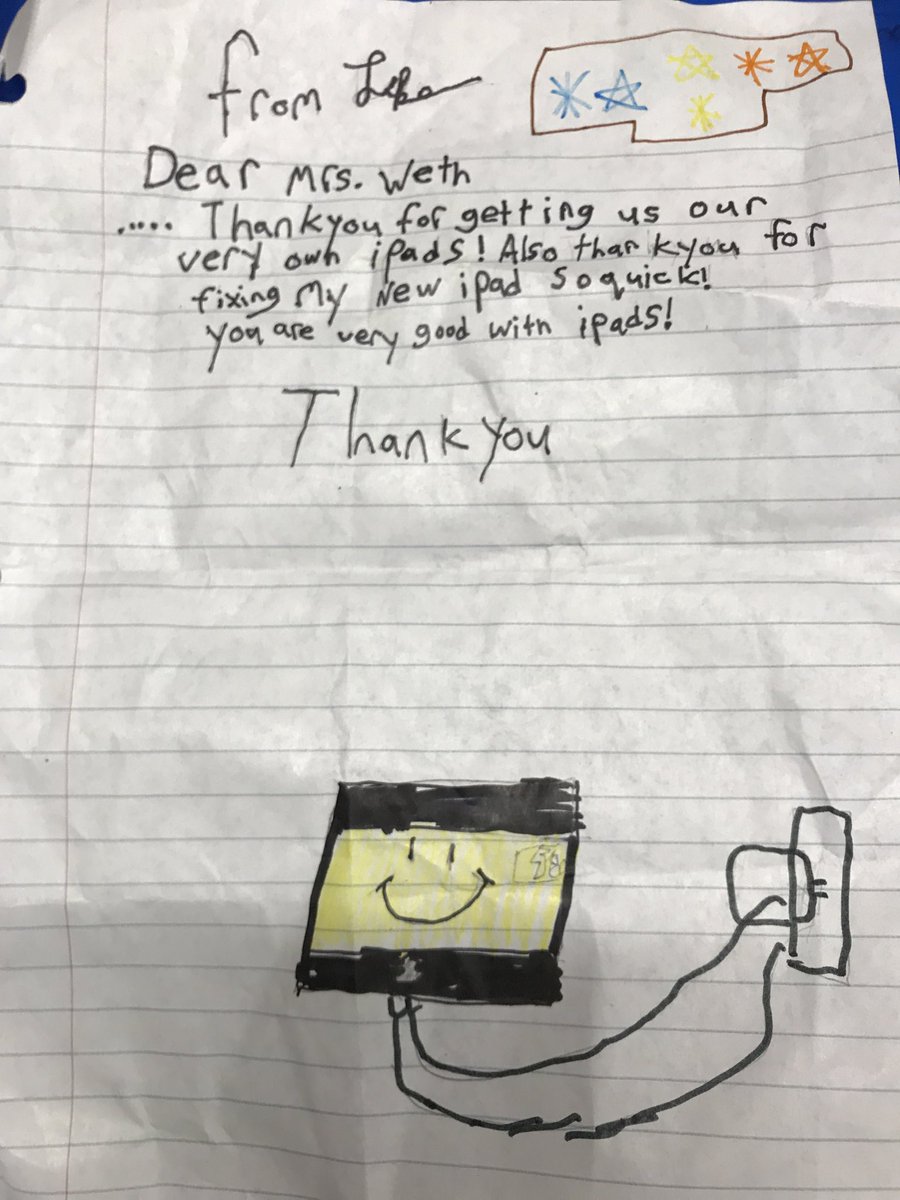 from
Dear Mrs. Weth
..... Thankyou for getting us our
very own ipads! Also thankyou for
fixing My New ipad so quick!
you are very good with ipads!
Thank you